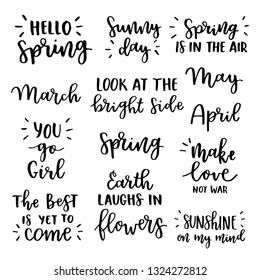 HELLO
Spring
Sunny
day
Spring
IS IN THE AIR
March
LOOK AT THE
bright side
May
April
YOU
go
Girl
Spring
make
love
NOT WAR
The Best
IS YET TO
COME
Earth
LAUGHS IN
flowers
SUNSHINE
on my mind
www.shutterstock.com · 1324272812